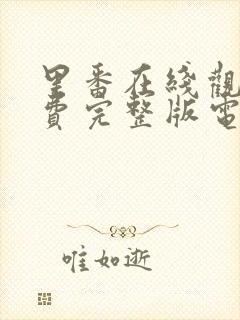 里番在线觀
費完整版電
唯如逝